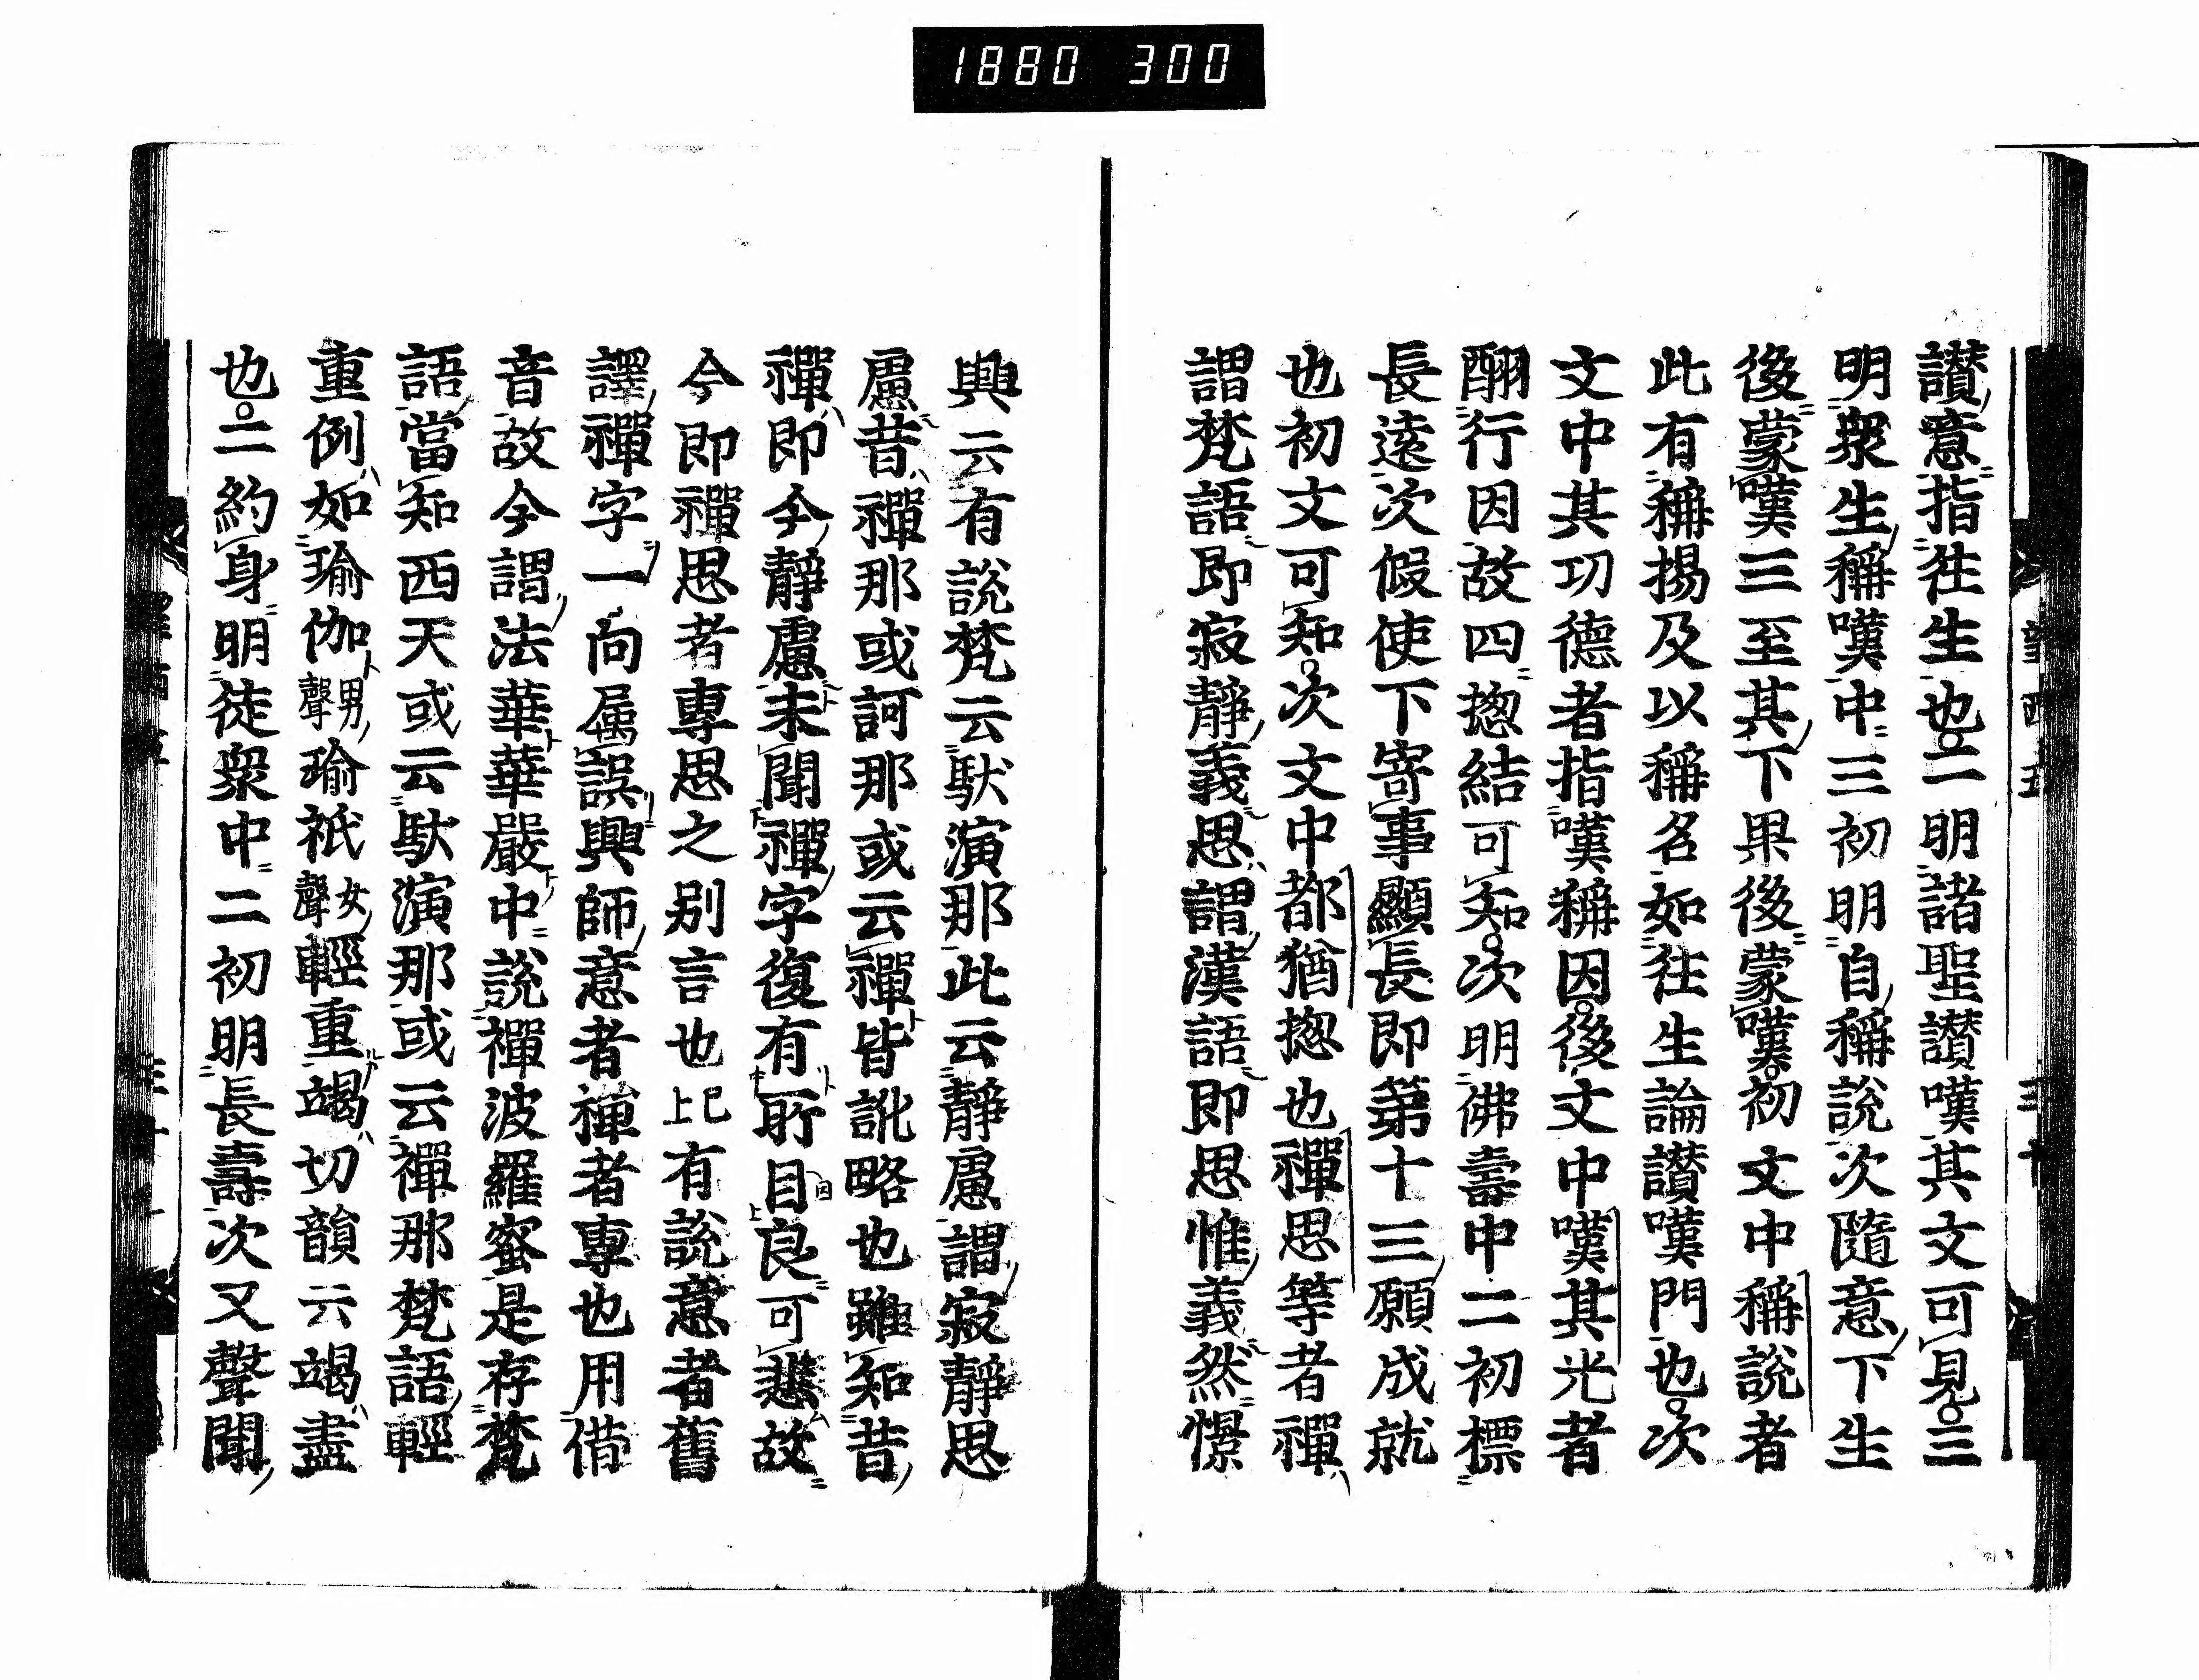 1880 300
讃意指往生也二明諸聖讃嘆其文可見三
明衆生稱嘆中三初明自稱説次隨意下生
後蒙嘆三至其下果後蒙嘆初文中稱説者
此有稱揚及以稱名如往生論讃嘆門也次
文中其功德者指嘆稱因後文中嘆其光者
酬行因故四揔結可知次明佛壽中二初標
長遠次假使下寄事顯長即第十三願成就
也初文可知次文中都猶揔也禪思等者禪
謂梵語即寂靜義思謂漢語即思惟義然憬
興云有説梵云馱演那此云靜慮謂寂靜思
慮昔禪那或訶那或云禪皆訛略也雖知昔
禪即今靜慮未聞禪字復有所目良可悲故
今即禪思者專思之別言也已上有説意者舊
譯禪字一向屬誤興師意者禪者專也用借
音故今謂法華華嚴中説禪波羅蜜是存梵
語當知西天或云馱演那或云禪那梵語輕
重例如瑜伽男聲瑜祇女聲輕重竭切韻云竭盡
也二約身明徒衆中二初明長壽次又聲聞